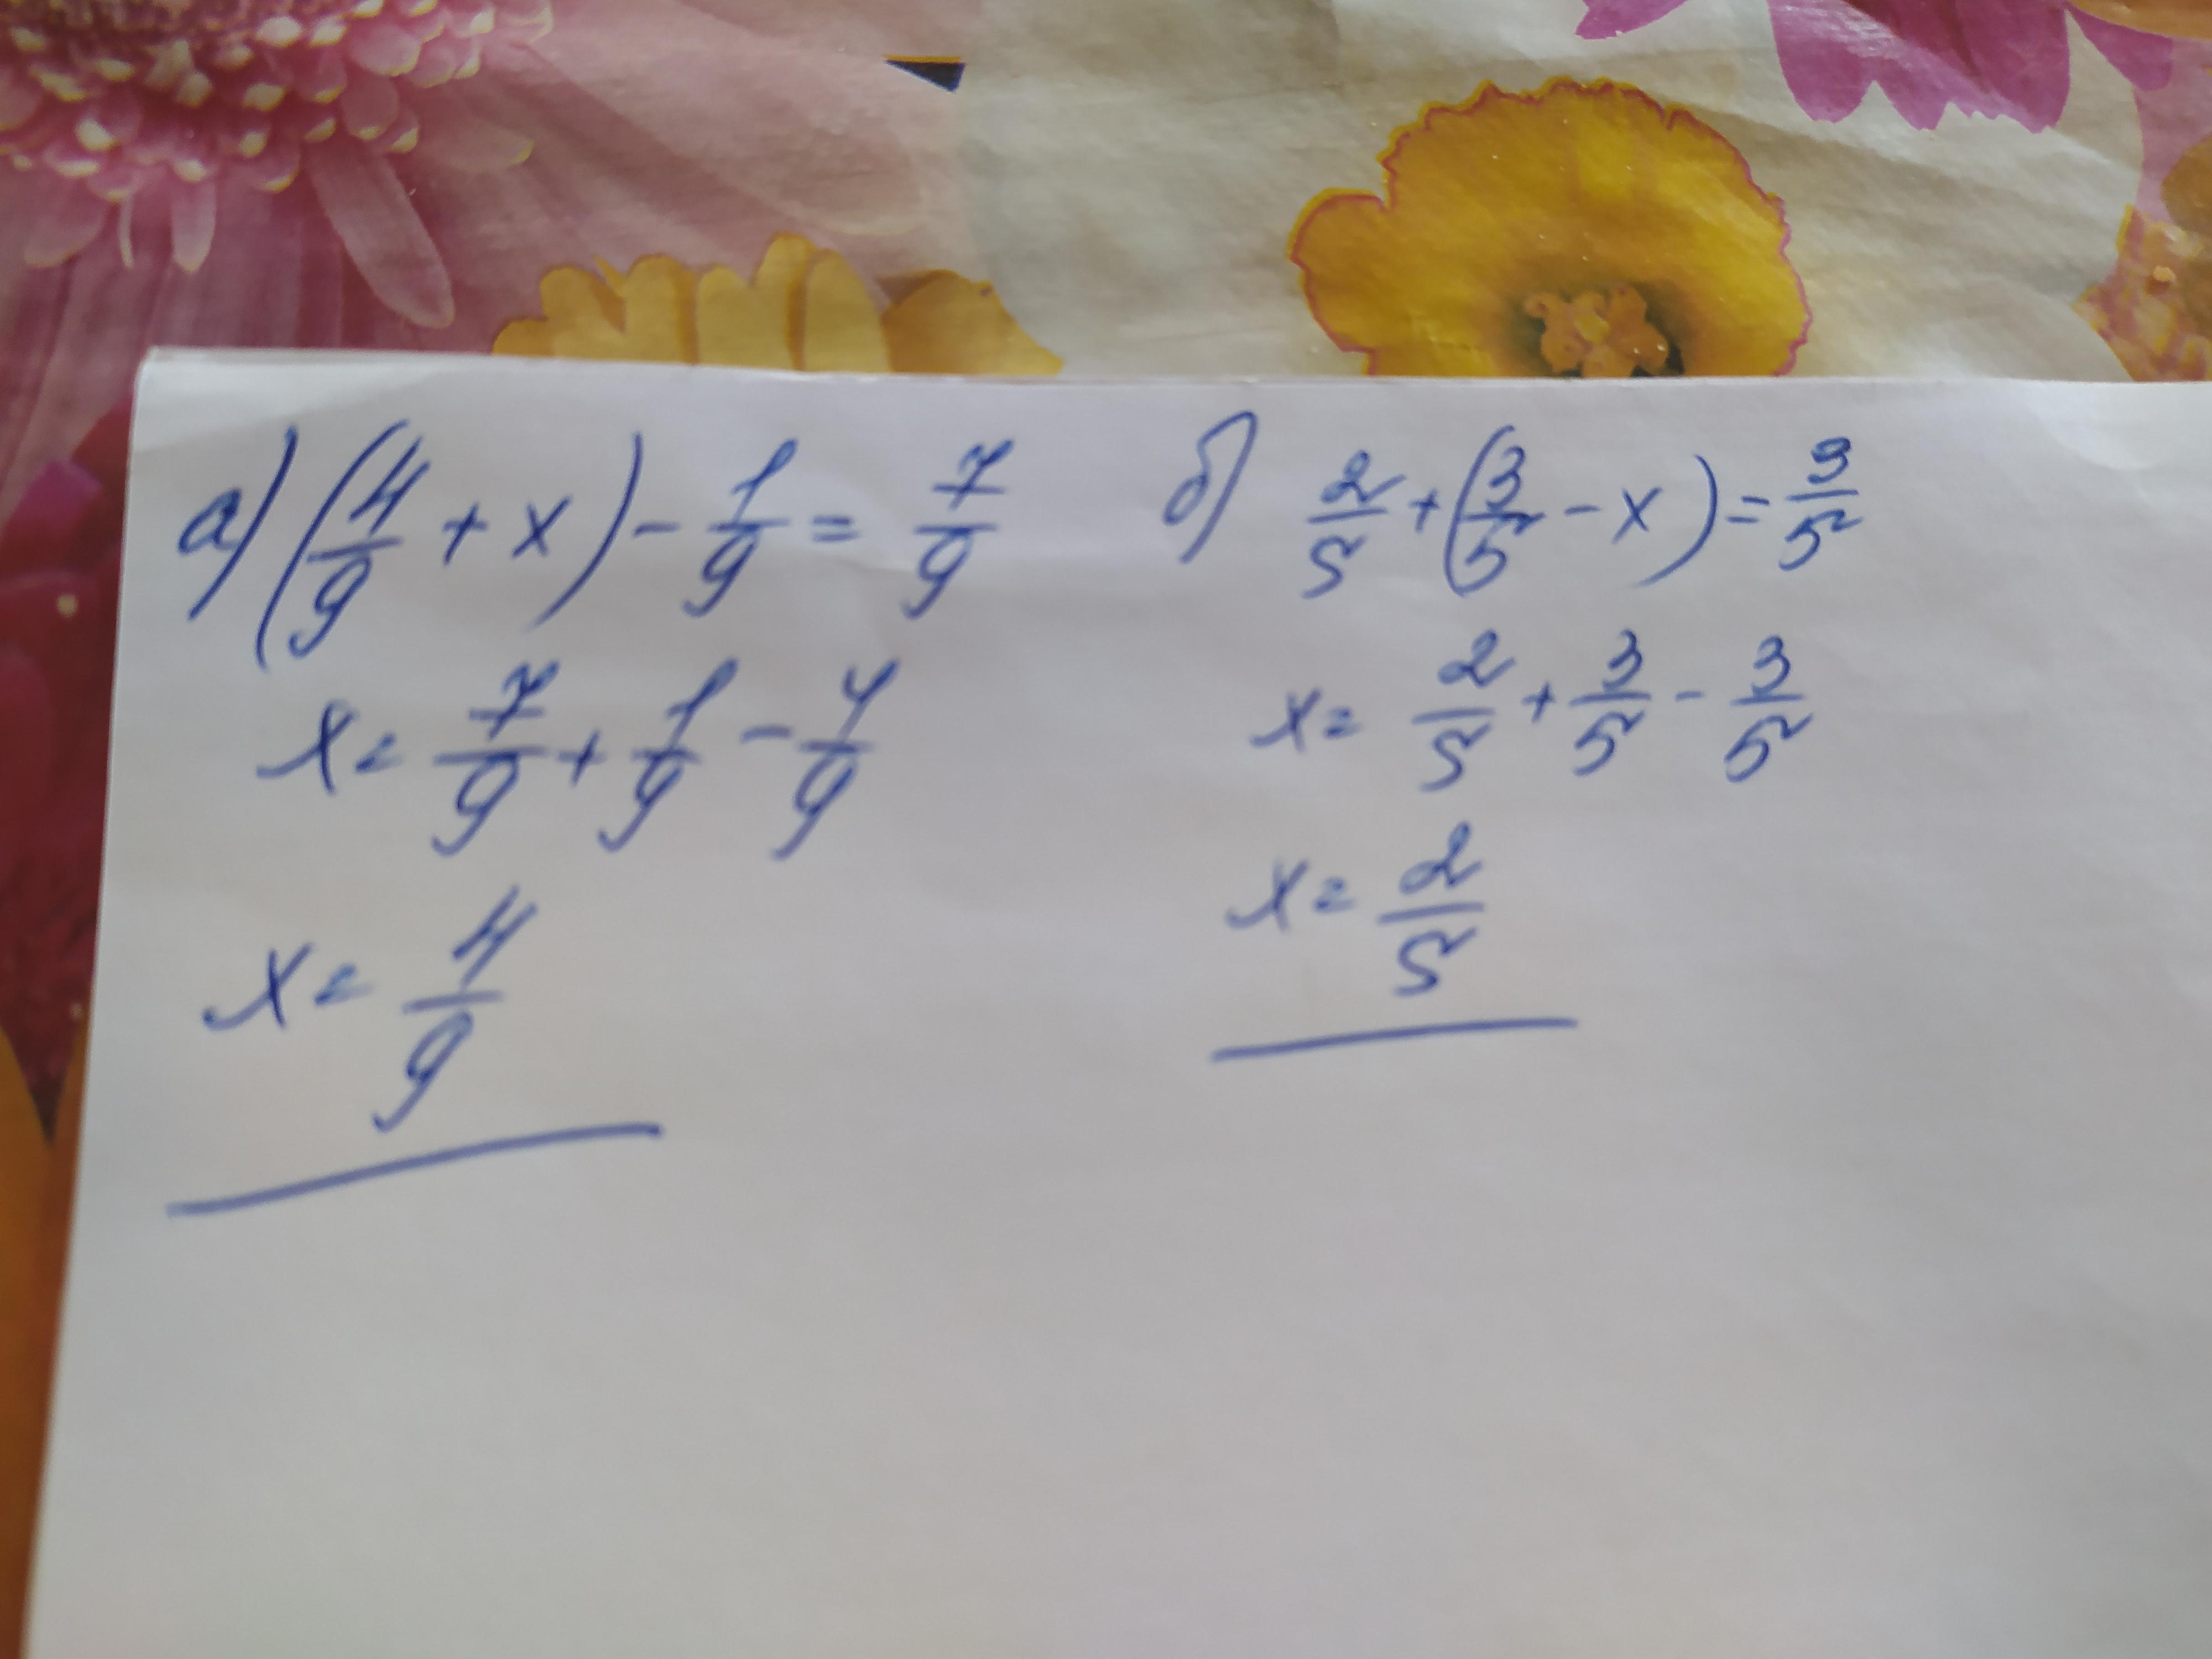 а) (4/9 + x) - 1/9 = 7/9
x = 7/9 + 1/9 - 4/9
x = 4/9
б) 2/5 + (3/5 - x) = 3/5
x = 2/5 + 3/5 - 3/5
x = 2/5